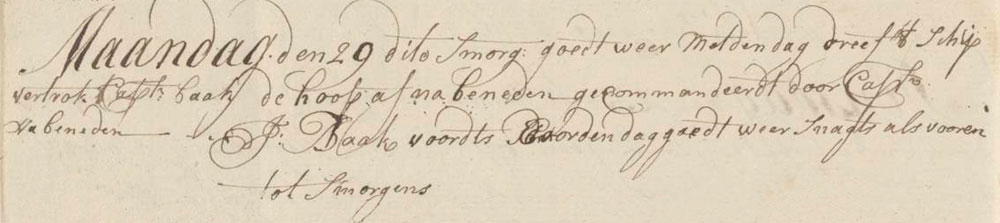 Maandag. den 29 dito Smorg: goedt weer Meldendag dreef het Schip
vertrok Capt: baak de hoop af na beneden gecommandeerdt door Captn.
na beneden — J: Baak voordts Voordendag goedt weer Snagts als vooren
tot Smorgens